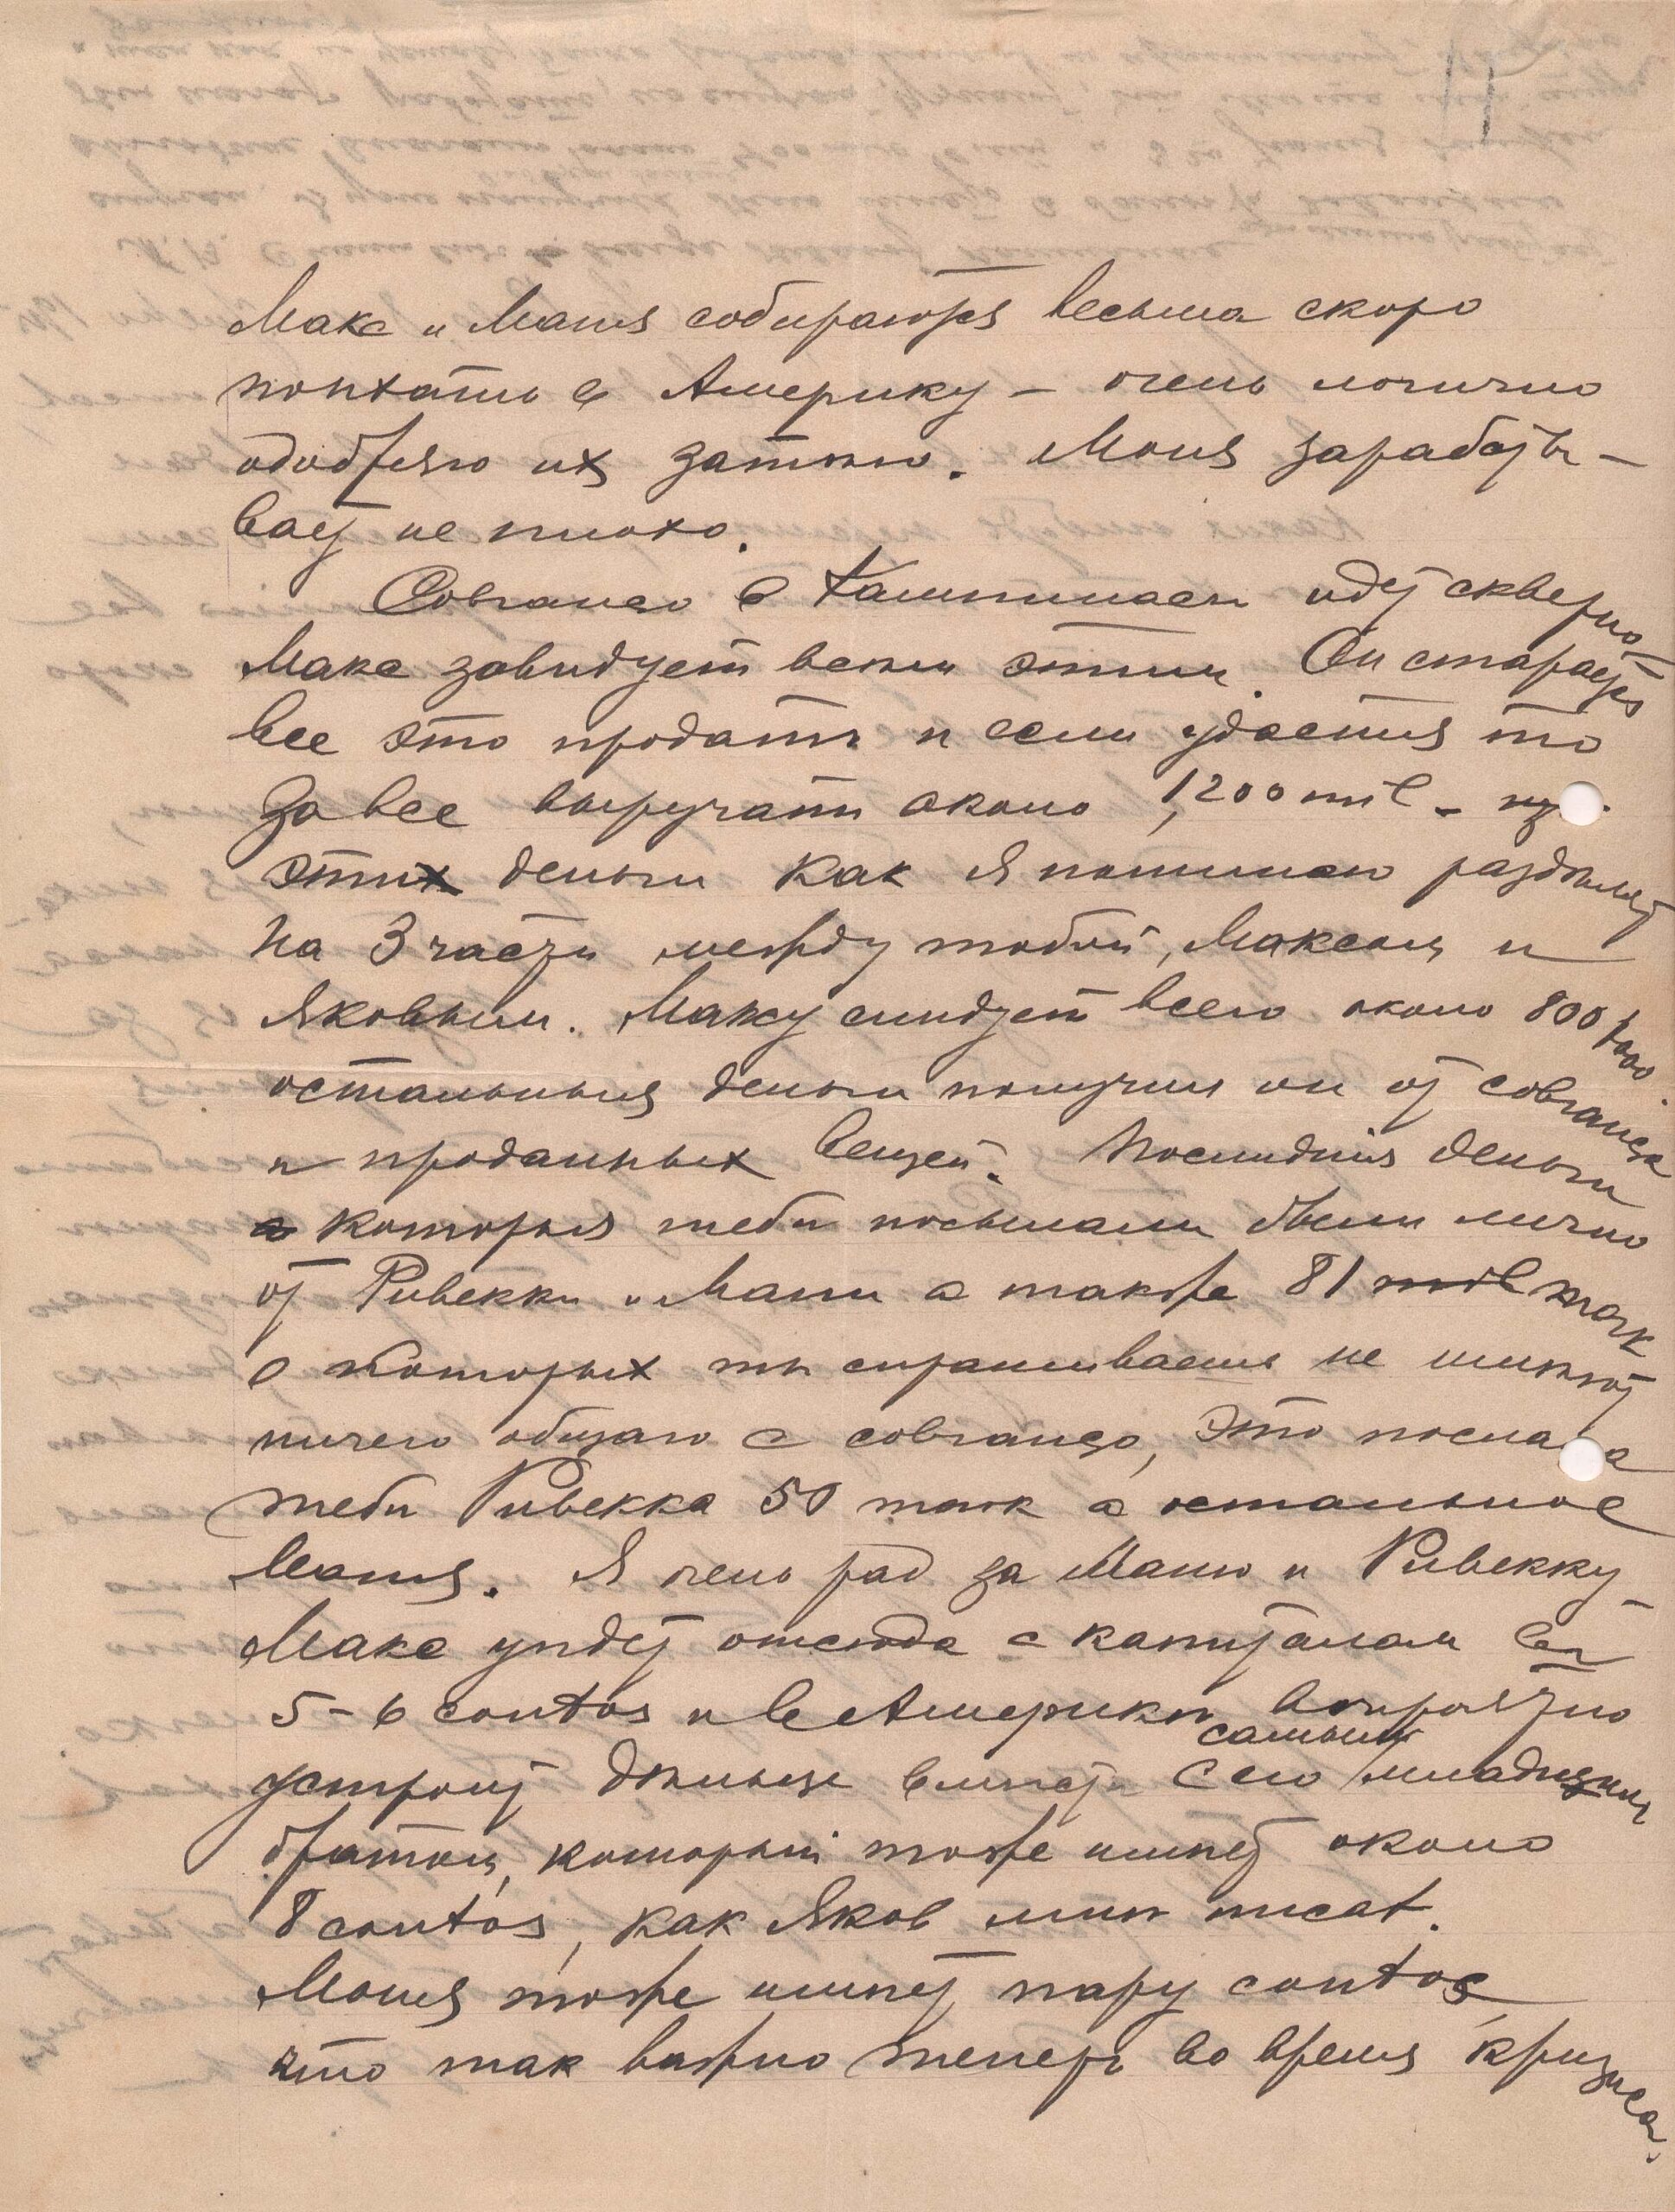 Макс и Маня собираются весьма скоро
поѣхать в Америку – очень логично
одобряю их затѣю. Моня зарабаты-
вает не плохо.
Совгансо в Кампинасѣ идет скверно
Макс завидует всѣм этим. Он старается
все это продать и если удастся то
за все выручать около 1,200 mil –
этих деньги как я понимаю раздѣлят
на 3 части между тобой, Максом и
Яковым. Максу слѣдует всего около 800$000
остальныя деньги получил он от совгансо
и проданных вещей. Послѣднія деньги
которыя тебѣ посылали были лично
от Ривекки и Мани а также 81 mil марк
о которых ты спрашиваешь не имѣют
ничего общаго с совгансо, это послала
тебѣ Ривекка 50 марк а остальное
Маня. Я очень рад за Маню и Ривекку –
Макс уѣдет отсюда с капиталом в
5–6 contos и в Америкѣ вѣроятно
устроит дѣльце вмѣстѣ с его самым младшим
братом, который тоже имѣет около
8 contos, как Яков мнѣ писал.
Моня тоже имѣет пару contos,
что так важно теперь во время кризиса.